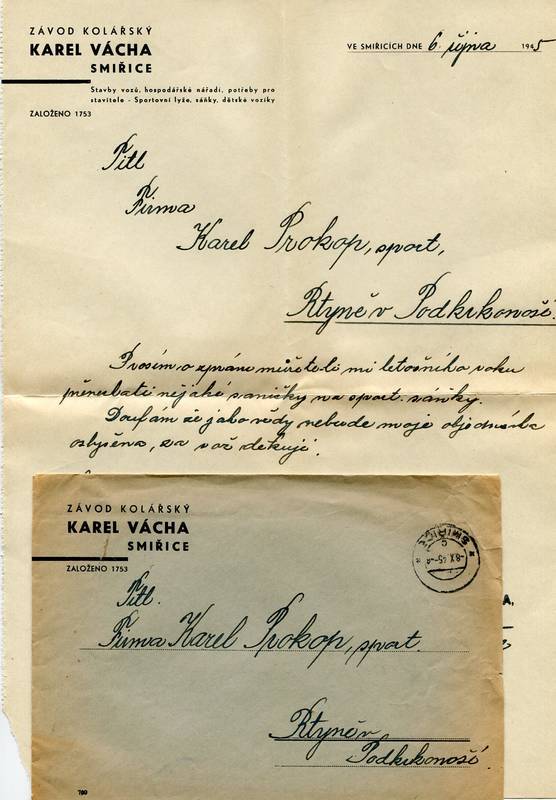 ZÁVOD KOLÁŘSKÝ
KAREL VÁCHA
SMIŘICE
Stavby vozů, hospodářské nářadí, potřeby pro
stavitele - Sportovní lyže, sáňky, dětské vozíky
ZALOŽENO 1753
VE SMIŘICÍCH DNE 6. října 1945
Titl
Firma
Karel Prokop, sport,
Rtyně v Podkrkonoší.
Prosím o zprávu můžete-li mi letošního roku
přenechati nějaké saničky na sport. sáňky.
Doufám že jako vždy nebude moje objednávka
oslyšena, za což děkuji.
ZÁVOD KOLÁŘSKÝ
KAREL VÁCHA
SMIŘICE
ZALOŽENO 1753
SMIŘICE
-8.X.45-
Titl.
Firma Karel Prokop, sport.
Rtyně v
Podkrkonoší.
700
A,